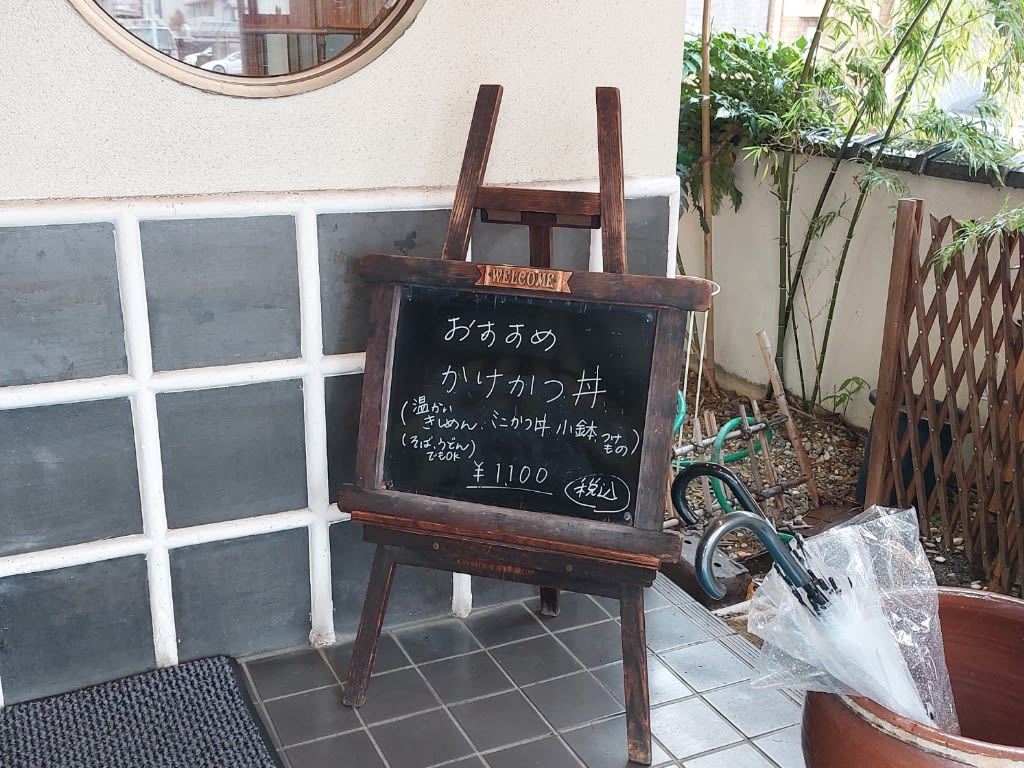 WELCOME
おすすめ
かけかつ丼
(温かいきしめん、ミニかつ丼、小鉢、つけもの)
(そば、うどんでもOK)
¥1,100 税込